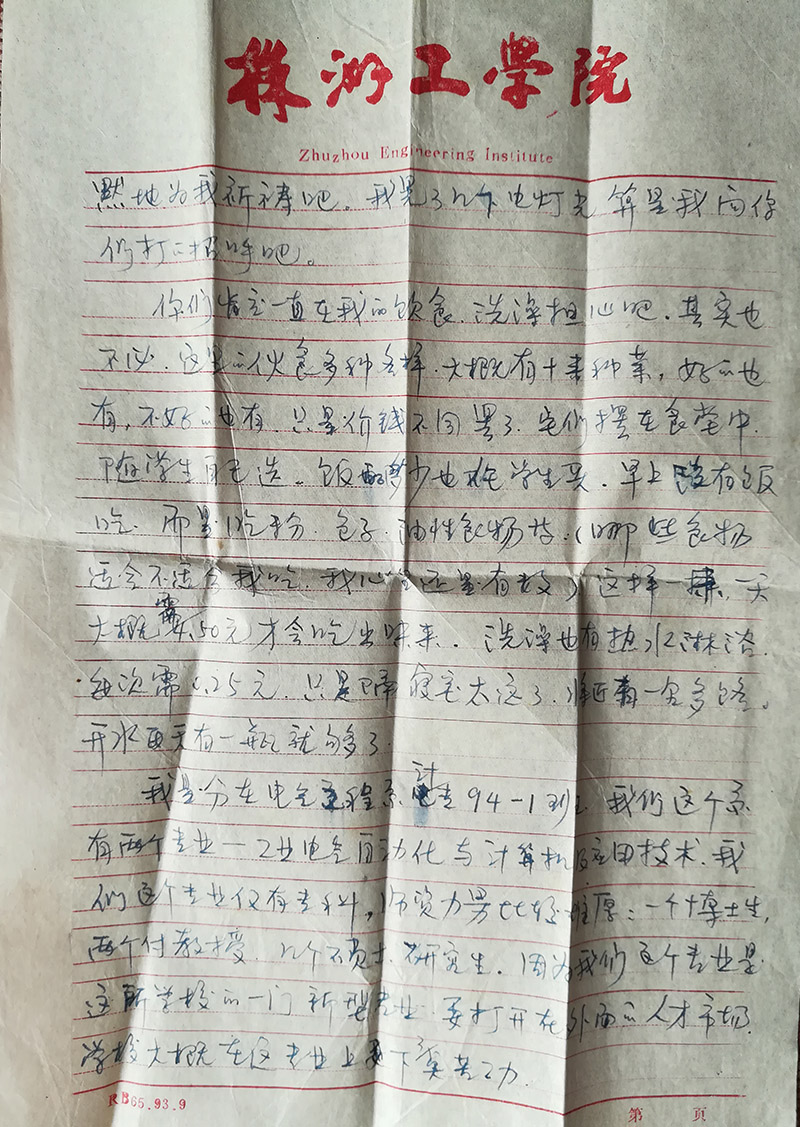 株洲工学院
Zhuzhou Engineering Institute
默地为我祈祷吧。我晃了几下电灯光算是我向你
们打的招呼吧。
你们肯定一直在我的饮食、洗澡担心吧,其实也
不必,这里的伙食多种多样,大概有十来种菜,好的也
有,不好的也有,只是价钱不同罢了,它们摆在食堂中
随学生自己选。饭多少也由学生买,早上没有饭
吃,而是吃粉、包子、油性食物等,(哪些食物
适合不适合我吃,我心里还是有数)这样一来,一天
大概需4.50元才会吃出味来。洗澡也有热水淋浴,
每次需0.25元,只是离寝室太远了,将近有一里多路。
开水每天有一瓶就够了。
我是分在电气工程系计专94-1班,我们这个系
有两个专业—工业电气自动化与计算机及应用技术,我
们这个专业仅有专科,师资力量比较雄厚:一个博士生,
两个付教授,几个硕士研究生,因为我们这个专业是
这所学校的一门新型专业,要打开在外面的人才市场,
学校大概在这专业上要下点苦功
RB65.93.9
第 页